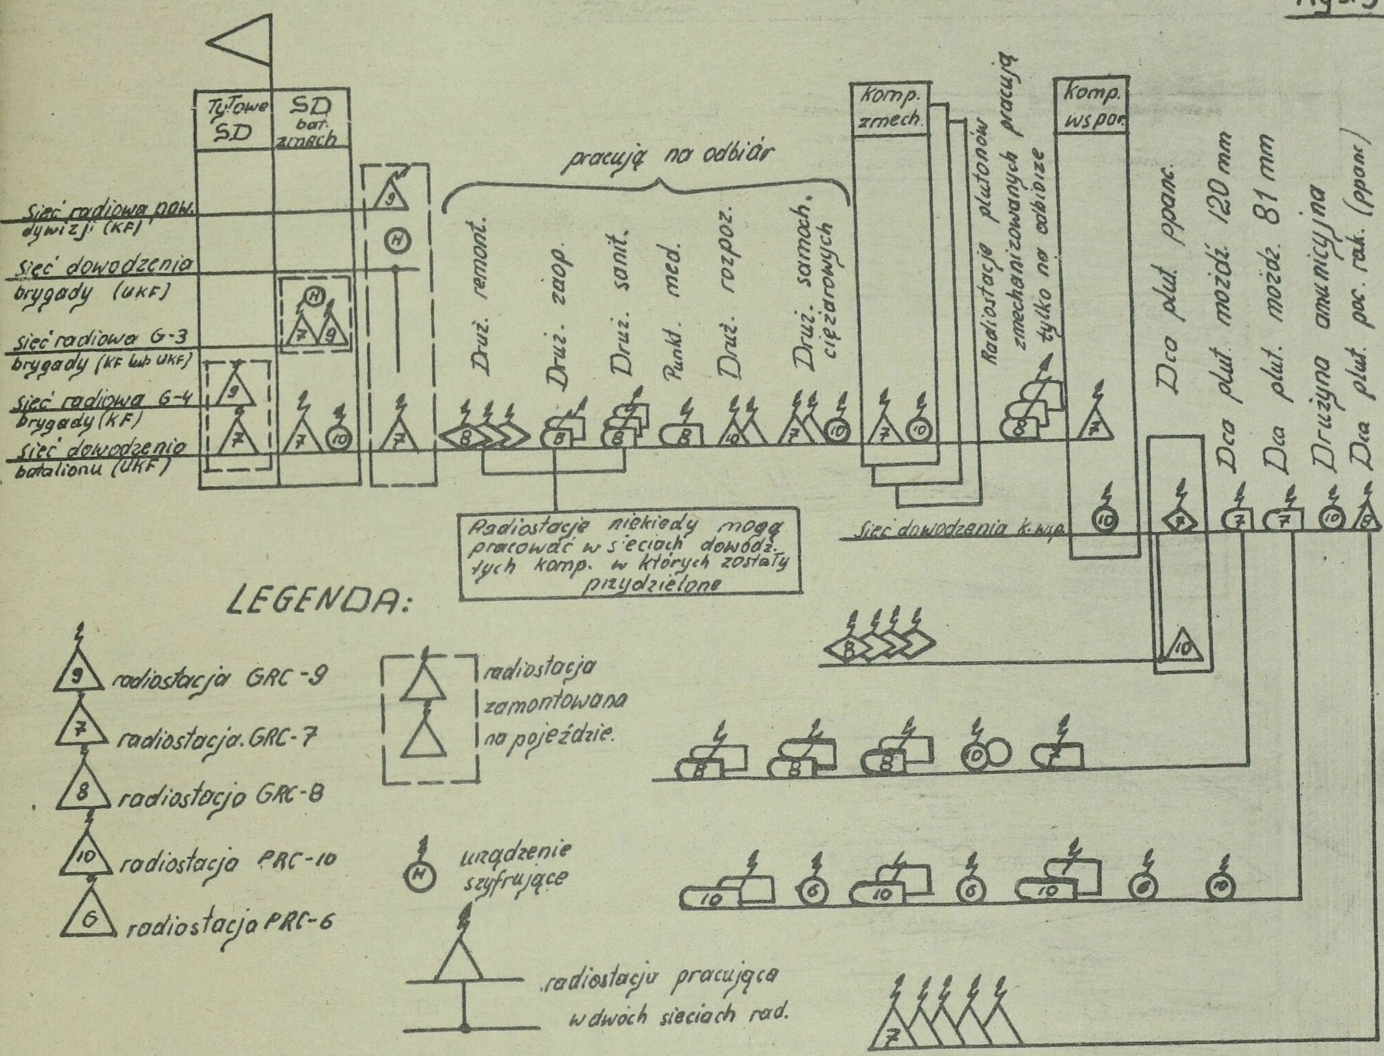 Tyłowe
SD
SD
bat.
zmech
Sieć radiowa pow.
dywizji (KF)
Sieć dowodzenia
brygady (UKF)
sieć radiowa G-3
brygady (KF lub UKF)
sieć radiowa G-4
brygady (KF)
sieć dowodzenia
batalionu (UKF)
9
N
N
7 9
9
7
7
10
7
pracują na odbiór
Druż. remont.
Druż. zaop.
Druż. sanit.
Punkt. med.
Druż. rozpoz.
Druż. samoch.
ciężarowych
8
8
8
8
10
7
10
Komp.
zmech.
7
10
Radiostacje plutonów
zmechanizowanych pracują
tylko na odbiorze
8
Komp.
wspar.
7
10
Dca plut. ppanc.
Dca plut. moździ. 120 mm
Dca plut. moźdz. 81 mm
Drużyna amunicyjna
Dca plut. poc. rak. (ppanc)
Sieć dowodzenia k. wsp.
7
7
7
10
8
Radiostacje niekiedy mogą
pracować w sieciach dowódz.
tych komp. w których zostały
przydzielone
LEGENDA:
9 radiostacja GRC-9
7 radiostacja. GRC-7
8 radiostacja GRC-8
10 radiostacja PRC-10
6 radiostacja PRC-6
radiostacja
zamontowana
na pojeździe.
N urządzenie
szyfrujące
radiostacja pracująca
w dwóch sieciach rad.
8
10
8 8 8 10 7
10 6 10 6 10 6 10
7